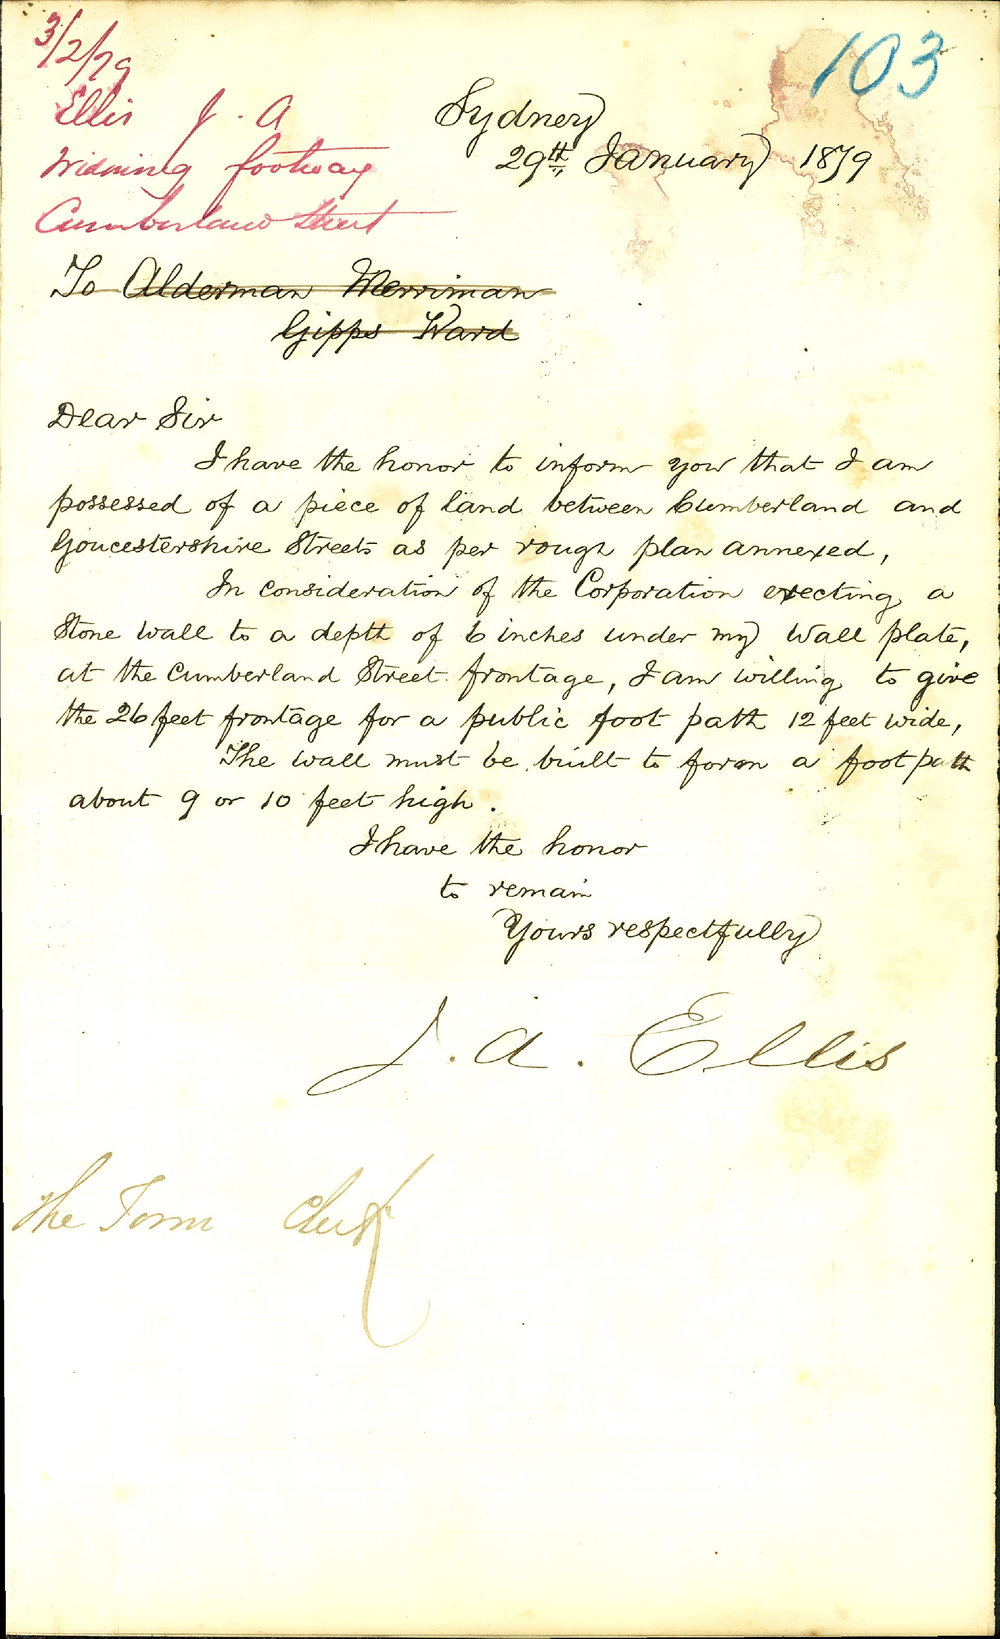 3/2/79
103
Ellis J. A
Widening footway
Cumberland Street
Sydney
29th January 1879
To Alderman Merriman
Gipps Ward
Dear Sir
I have the honor to inform you that I am
possessed of a piece of land between Cumberland and
Goucestershire Streets as per rough plan annexed,
In consideration of the Corporation erecting a
Stone wall to a depth of 6 inches under my wall plate,
at the Cumberland Street frontage, I am willing to give
the 26 feet frontage for a public foot path 12 feet wide,
The wall must be built to form a foot path
about 9 or 10 feet high.
I have the honor
to remain
Yours respectfully
J. A. Ellis
The Town Clerk